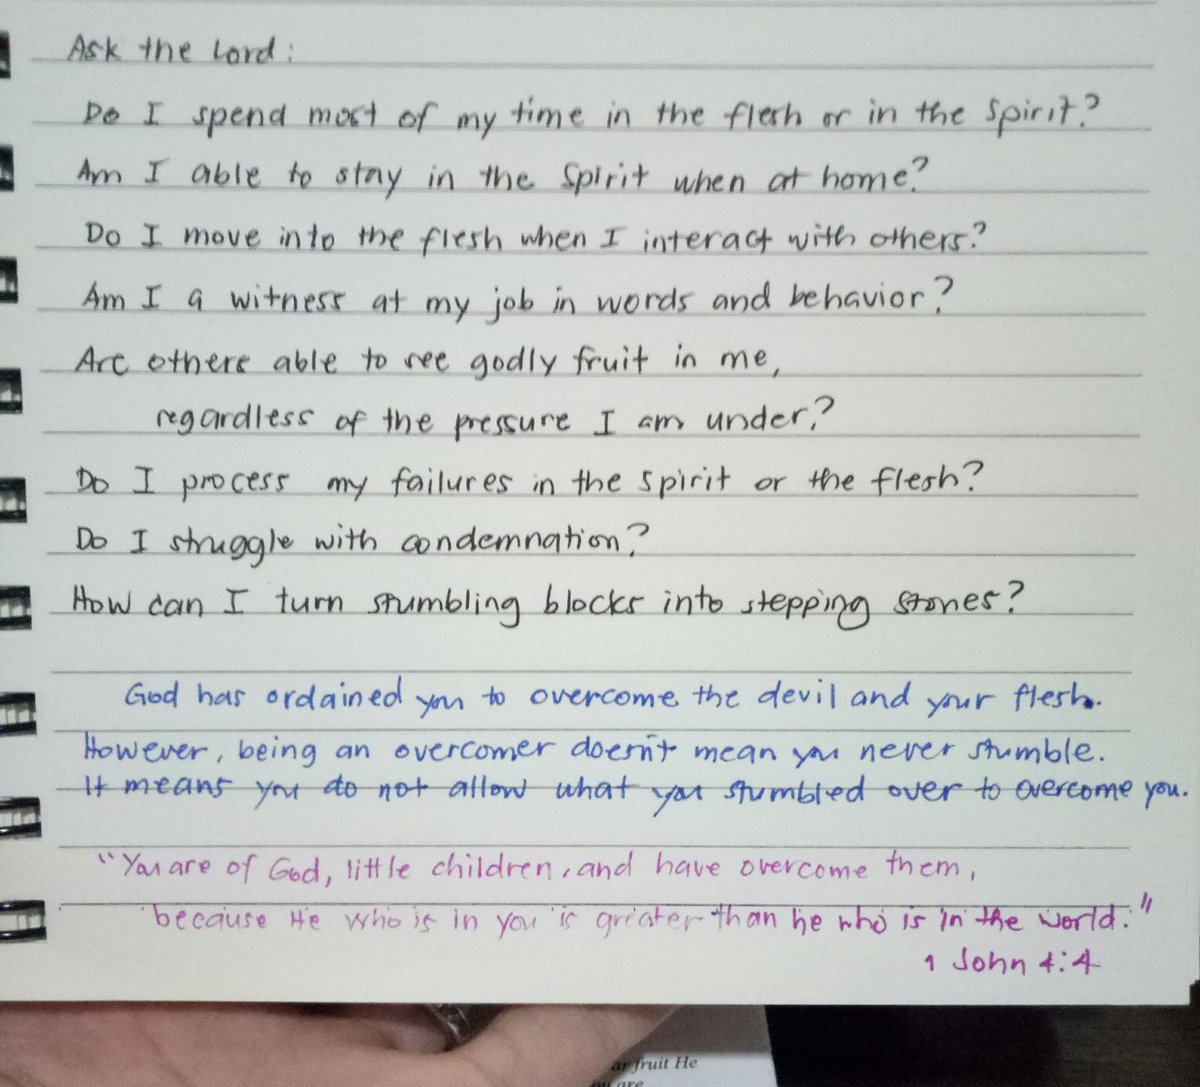 Ask the Lord:
Do I spend most of my time in the flesh or in the Spirit?
Am I able to stay in the Spirit when at home?
Do I move into the flesh when I interact with others?
Am I a witness at my job in words and behavior?
Are others able to see godly fruit in me,
regardless of the pressure I am under?
Do I process my failures in the spirit or the flesh?
Do I struggle with condemnation?
How can I turn stumbling blocks into stepping stones?
God has ordained you to overcome the devil and your flesh.
However, being an overcomer doesn't mean you never stumble.
It means you do not allow what you stumbled over to overcome you.
"You are of God, little children, and have overcome them,
because He who is in you is greater than he who is in the world."
1 John 4:4
fruit He
are